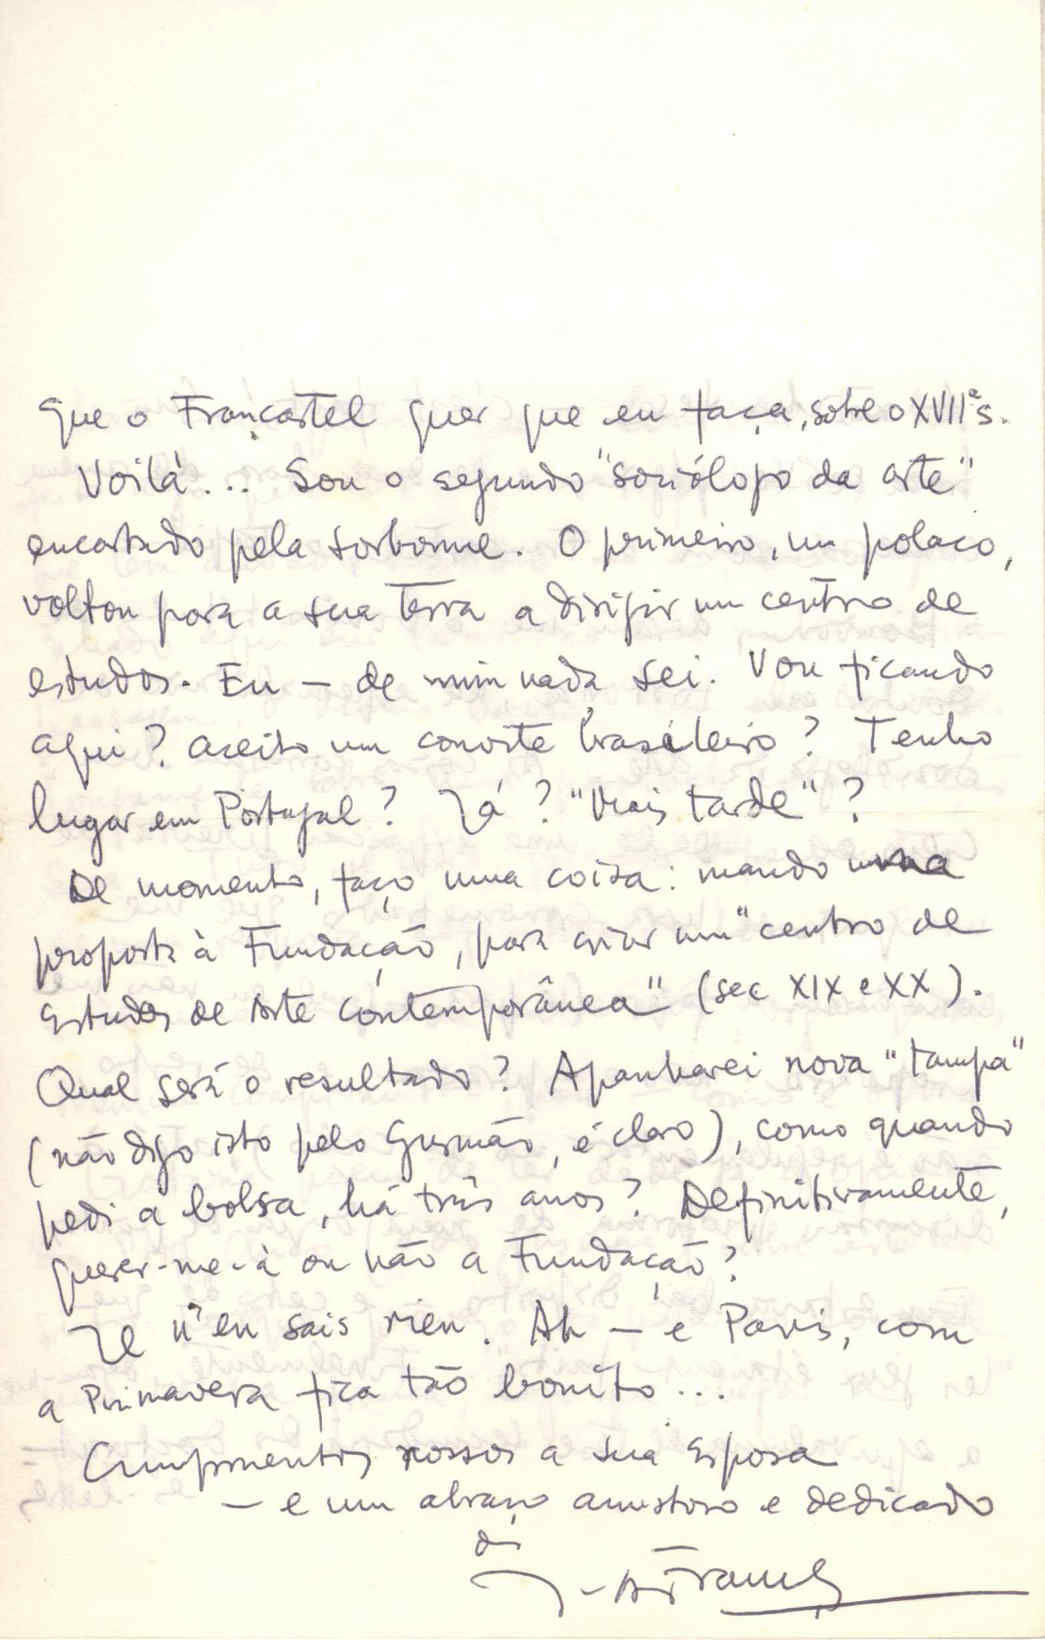 que o Francastel quer que eu faça, sobre o XVIIe s.
Voilà... Sou o segundo "sociólogo da arte"
encartado pela Sorbonne. O primeiro, um polaco,
voltou para a sua terra a dirigir um centro de
estudos. Eu — de mim nada sei. Vou ficando
aqui? Aceito um convite brasileiro? Tenho
lugar em Portugal? Já? "Mais tarde"?
De momento, faço uma coisa: mando uma
proposta à Fundação, para criar um "centro de
Estudos de Arte Contemporânea" (sec XIX e XX).
Qual será o resultado? Apanharei nova "tampa"
(não digo isto pelo Gusmão, é claro), como quando
pedi a bolsa, há três anos? Definitivamente,
querer-me-à ou não a Fundação?
Je n'en sais rien. Ah — e Paris, com
a Primavera fica tão bonito...
Cumprimentos nossos a sua Esposa
— e um abraço amistoso e dedicado
do
J.-A. França